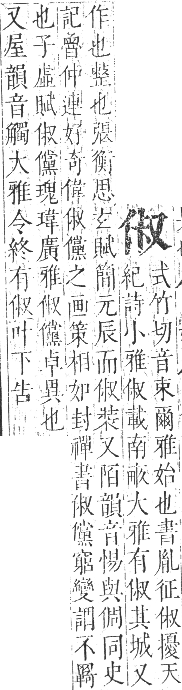 俶
式竹切音束爾雅始也書胤征俶擾天
紀詩小雅俶載南畝大雅有俶其城又
作也整也張衡思玄賦簡元辰而俶裝又陌韻音惕與倜同史
記魯仲連好奇偉俶儻之画策相如封禪書俶儻窮變謂不羈
也子虛賦俶儻瑰瑋廣雅俶儻卓異也
又屋韻音觸大雅令終有俶叶下告